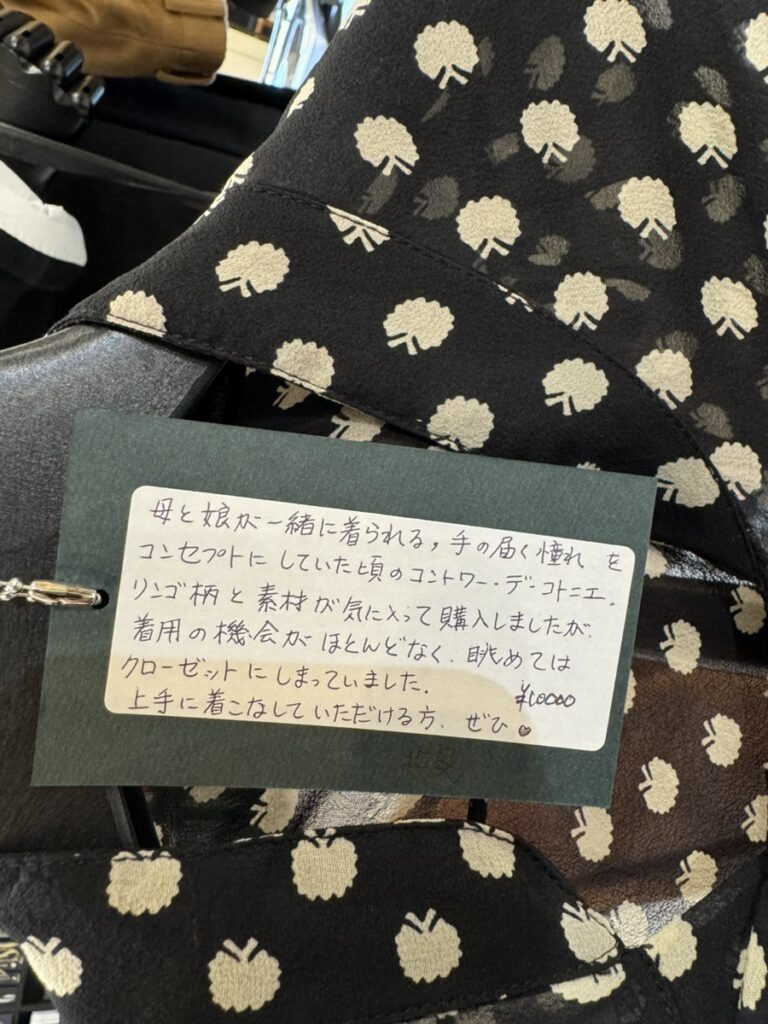 母と娘が一緒に着られる，手の届く憧れ を
コンセプトに していた頃のコントワー・デ・コトニエ.
リンゴ柄と素材が気に入って購入しましたが.
着用の機会がほとんどなく.眺めては
クローゼットにしまっていました.
¥10000
上手に着こなしていただける方. ぜひ